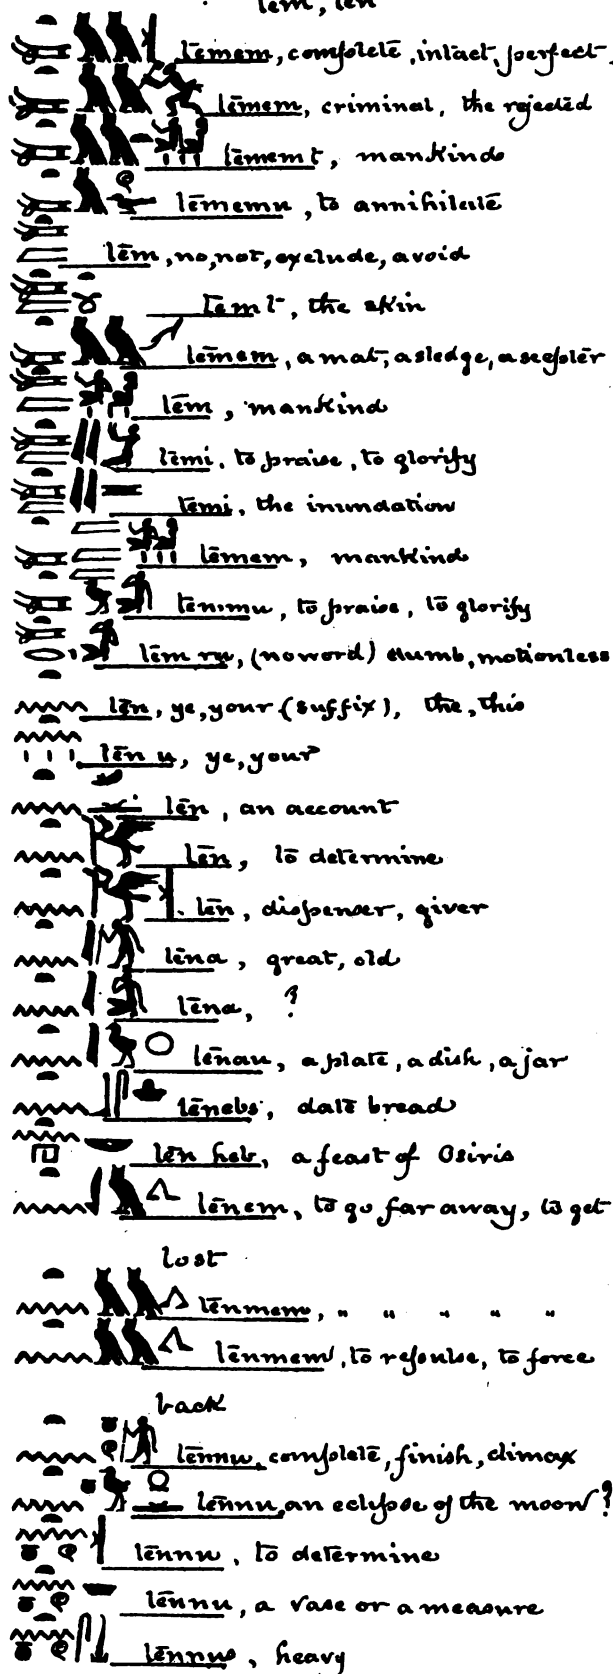 tem, ten
temem, complete, intact, perfect.
temem, criminal, the rejected
tememt, mankind
tememu, to annihilate
tem, no, not, exclude, avoid
temt, the skin
temem, a mat, a sledge, a scepter
tem, mankind
temi, to praise, to glorify
temi, the inundation
temem, mankind
temmu, to praise, to glorify
tem ru, (no word) dumb, motionless
ten, ye, your (suffix), the, this
ten u, ye, your
ten, an account
ten, to determine
ten, dispenser, giver
tena, great, old
tena, ?
tenau, a plate, a dish, a jar
tenebs, date bread
ten heb, a feast of Osiris
tenem, to go far away, to get
lost
tenmem, " " " " "
tenmem, to repulse, to force
back
tennu, complete, finish, climax
tennu, an eclipse of the moon?
tennu, to determine
tennu, a vase or a measure
tennus, heavy